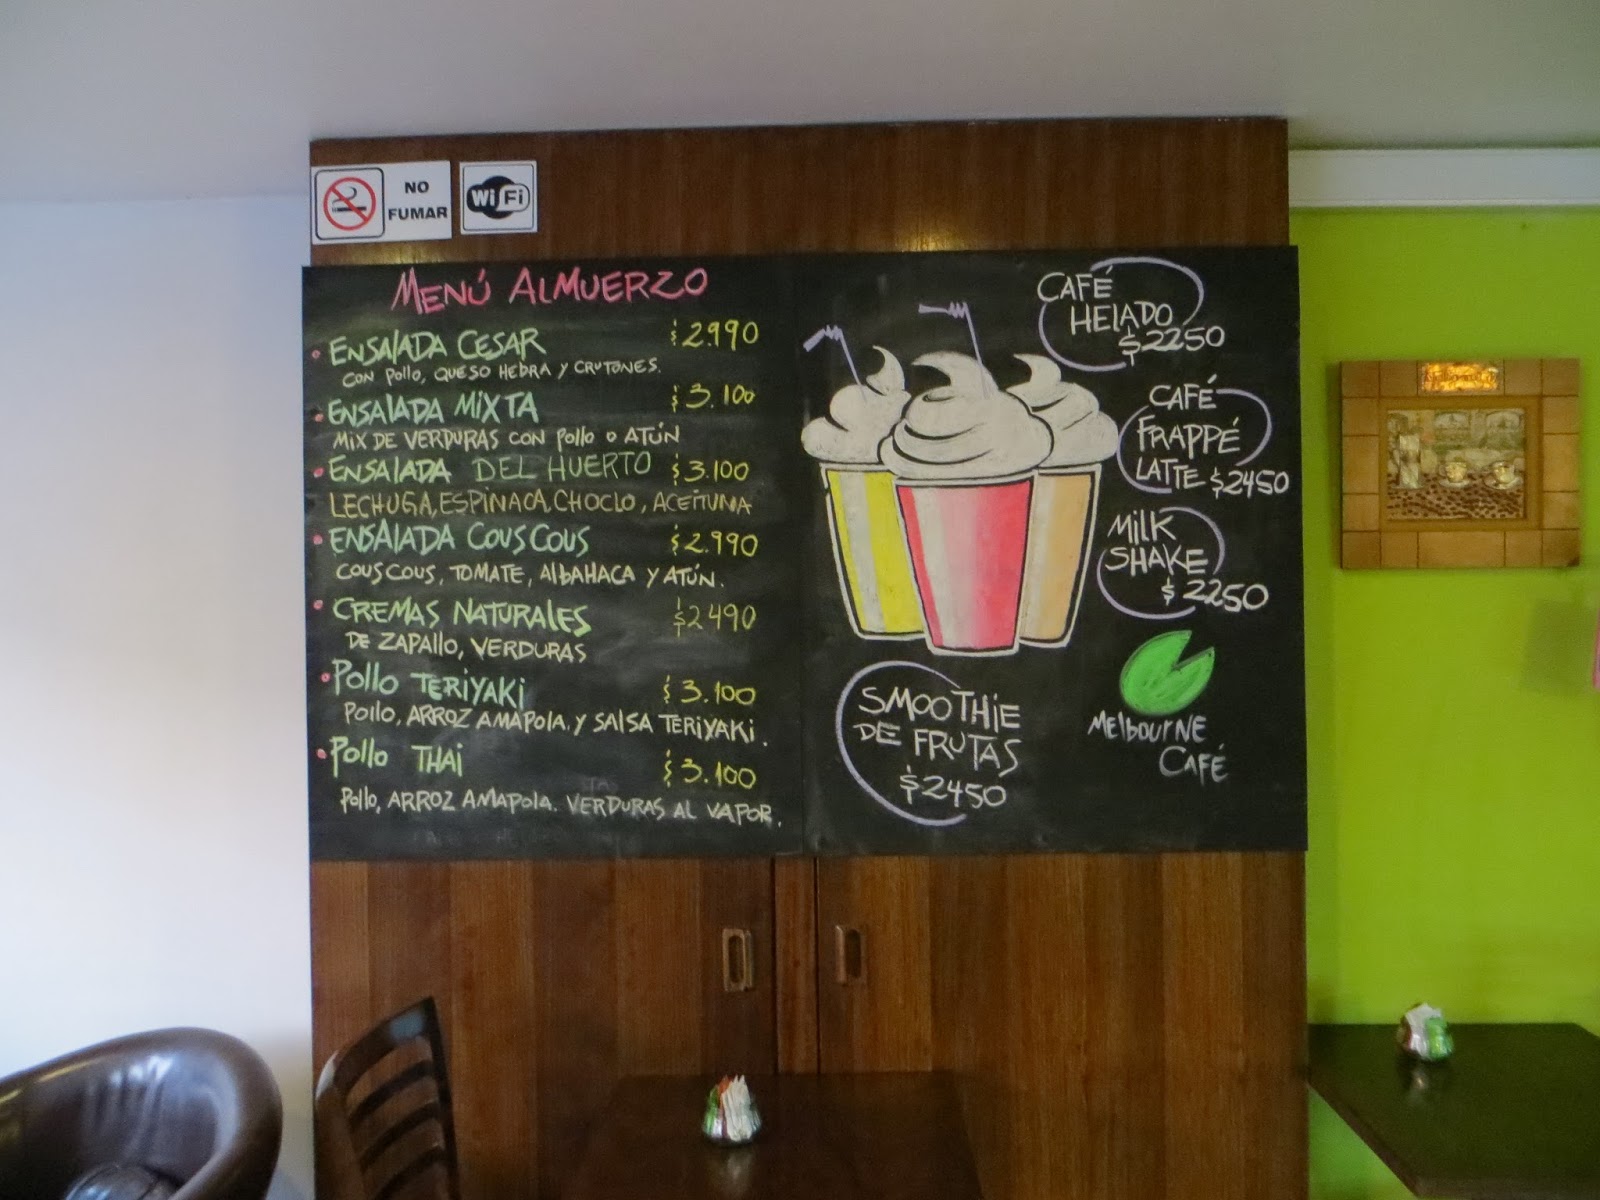 NO
FUMAR
Wi Fi
MENÚ ALMUERZO
ENSALADA CESAR $2.990
CON POLLO, QUESO HEBRA Y CRUTONES.
ENSALADA MIXTA $3.100
MIX DE VERDURAS CON POLLO O ATÚN
ENSALADA DEL HUERTO $3.100
LECHUGA, ESPINACA, CHOCLO, ACEITUNA
ENSALADA COUSCOUS $2.990
COUSCOUS, TOMATE, ALBAHACA Y ATÚN.
CREMAS NATURALES $2490
DE ZAPALLO, VERDURAS
POLLO TERIYAKI $3.100
POLLO, ARROZ AMAPOLA. Y SALSA TERIYAKI.
POLLO THAI $3.100
POLLO, ARROZ AMAPOLA. VERDURAS AL VAPOR.
CAFÉ
HELADO
$2250
CAFÉ
FRAPPÉ
LATTE $2450
MILK
SHAKE
$2250
SMOOTHIE
DE FRUTAS
$2450
MELBOURNE
CAFÉ